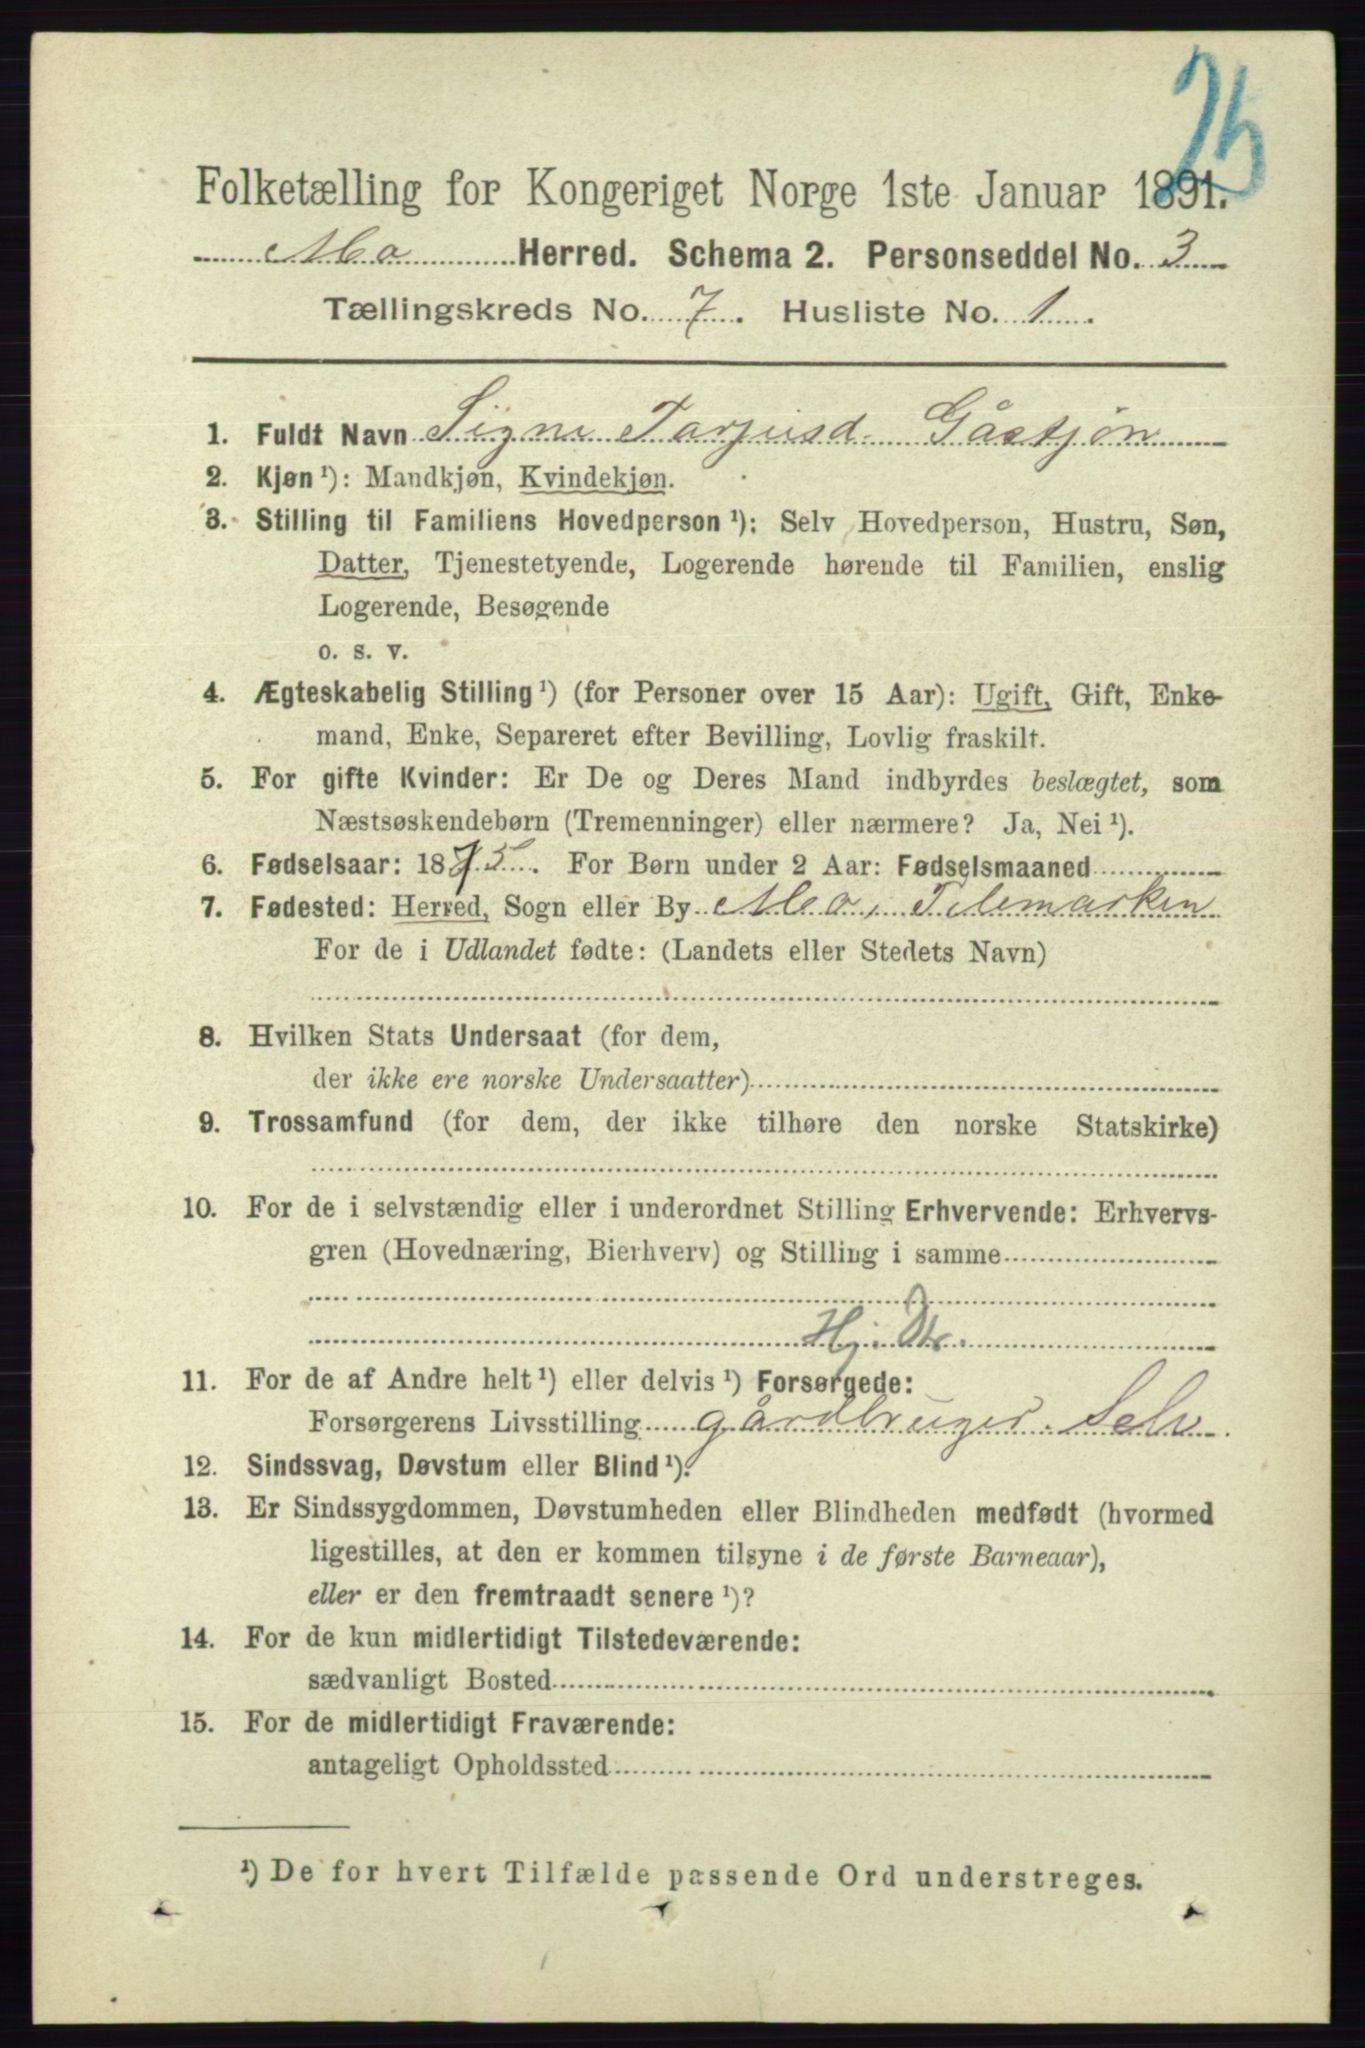 25
Folketælling for Kongeriget Norge 1ste Januar 1891.
Mo Herred. Schema 2. Personseddel No. 3
Tællingskreds No. 7. Husliste No. 1.
1. Fuldt Navn Signe Tarjeisd. Gåstjøn
2. Kjøn ¹): Mandkjøn, Kvindekjøn.
3. Stilling til Familiens Hovedperson ¹): Selv Hovedperson, Hustru, Søn,
Datter, Tjenestetyende, Logerende hørende til Familien, enslig
Logerende, Besøgende
o. s. v.
4. Ægteskabelig Stilling ¹) (for Personer over 15 Aar): Ugift, Gift, Enke-
mand, Enke, Separeret efter Bevilling, Lovlig fraskilt.
5. For gifte Kvinder: Er De og Deres Mand indbyrdes beslægtet, som
Næstsøskendebørn (Tremenninger) eller nærmere? Ja, Nei ¹).
6. Fødselsaar: 1875. For Børn under 2 Aar: Fødselsmaaned
7. Fødested: Herred, Sogn eller By Mo, Telemarken
For de i Udlandet fødte: (Landets eller Stedets Navn)
8. Hvilken Stats Undersaat (for dem,
der ikke ere norske Undersaatter)
9. Trossamfund (for dem, der ikke tilhøre den norske Statskirke)
10. For de i selvstændig eller i underordnet Stilling Erhvervende: Erhvervs-
gren (Hovednæring, Bierhverv) og Stilling i samme
Hj. Dtr.
11. For de af Andre helt ¹) eller delvis ¹) Forsørgede:
Forsørgerens Livsstilling gårdbruger. Selv.
12. Sindssvag, Døvstum eller Blind ¹).
13. Er Sindssygdommen, Døvstumheden eller Blindheden medfødt (hvormed
ligestilles, at den er kommen tilsyne i de første Barneaar),
eller er den fremtraadt senere ¹)?
14. For de kun midlertidigt Tilstedeværende:
sædvanligt Bosted
15. For de midlertidigt Fraværende:
antageligt Opholdssted
¹) De for hvert Tilfælde passende Ord understreges.